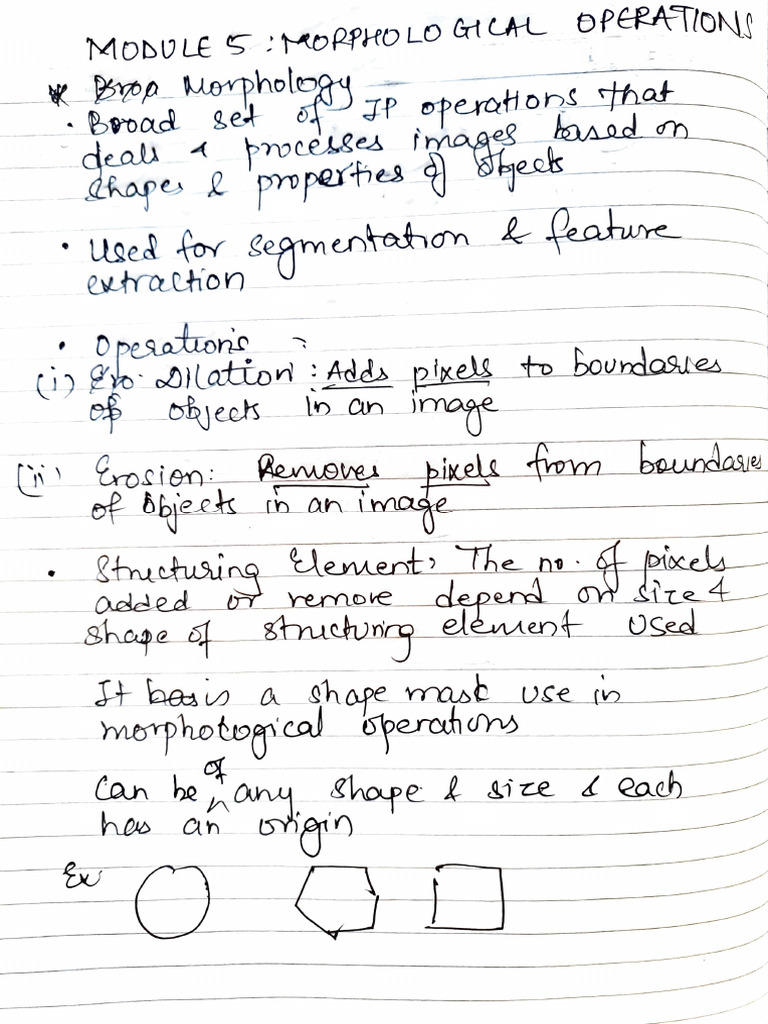 MODULE 5 : MORPHOLOGICAL OPERATIONS
* Morphology
• Broad set of IP operations that
deals & processes images based on
shapes & properties of objects
• Used for segmentation & feature
extraction
• Operations :
(i) Ero. Dilation : Adds pixels to boundaries
of objects in an image
(ii) Erosion: Removes pixels from boundaries
of objects in an image
• Structuring Element: The no. of pixels
added or remove depend on size &
shape of structuring element used
It has is a shape mask use in
morphological operations
Can be of any shape & size & each
has an origin
Ex